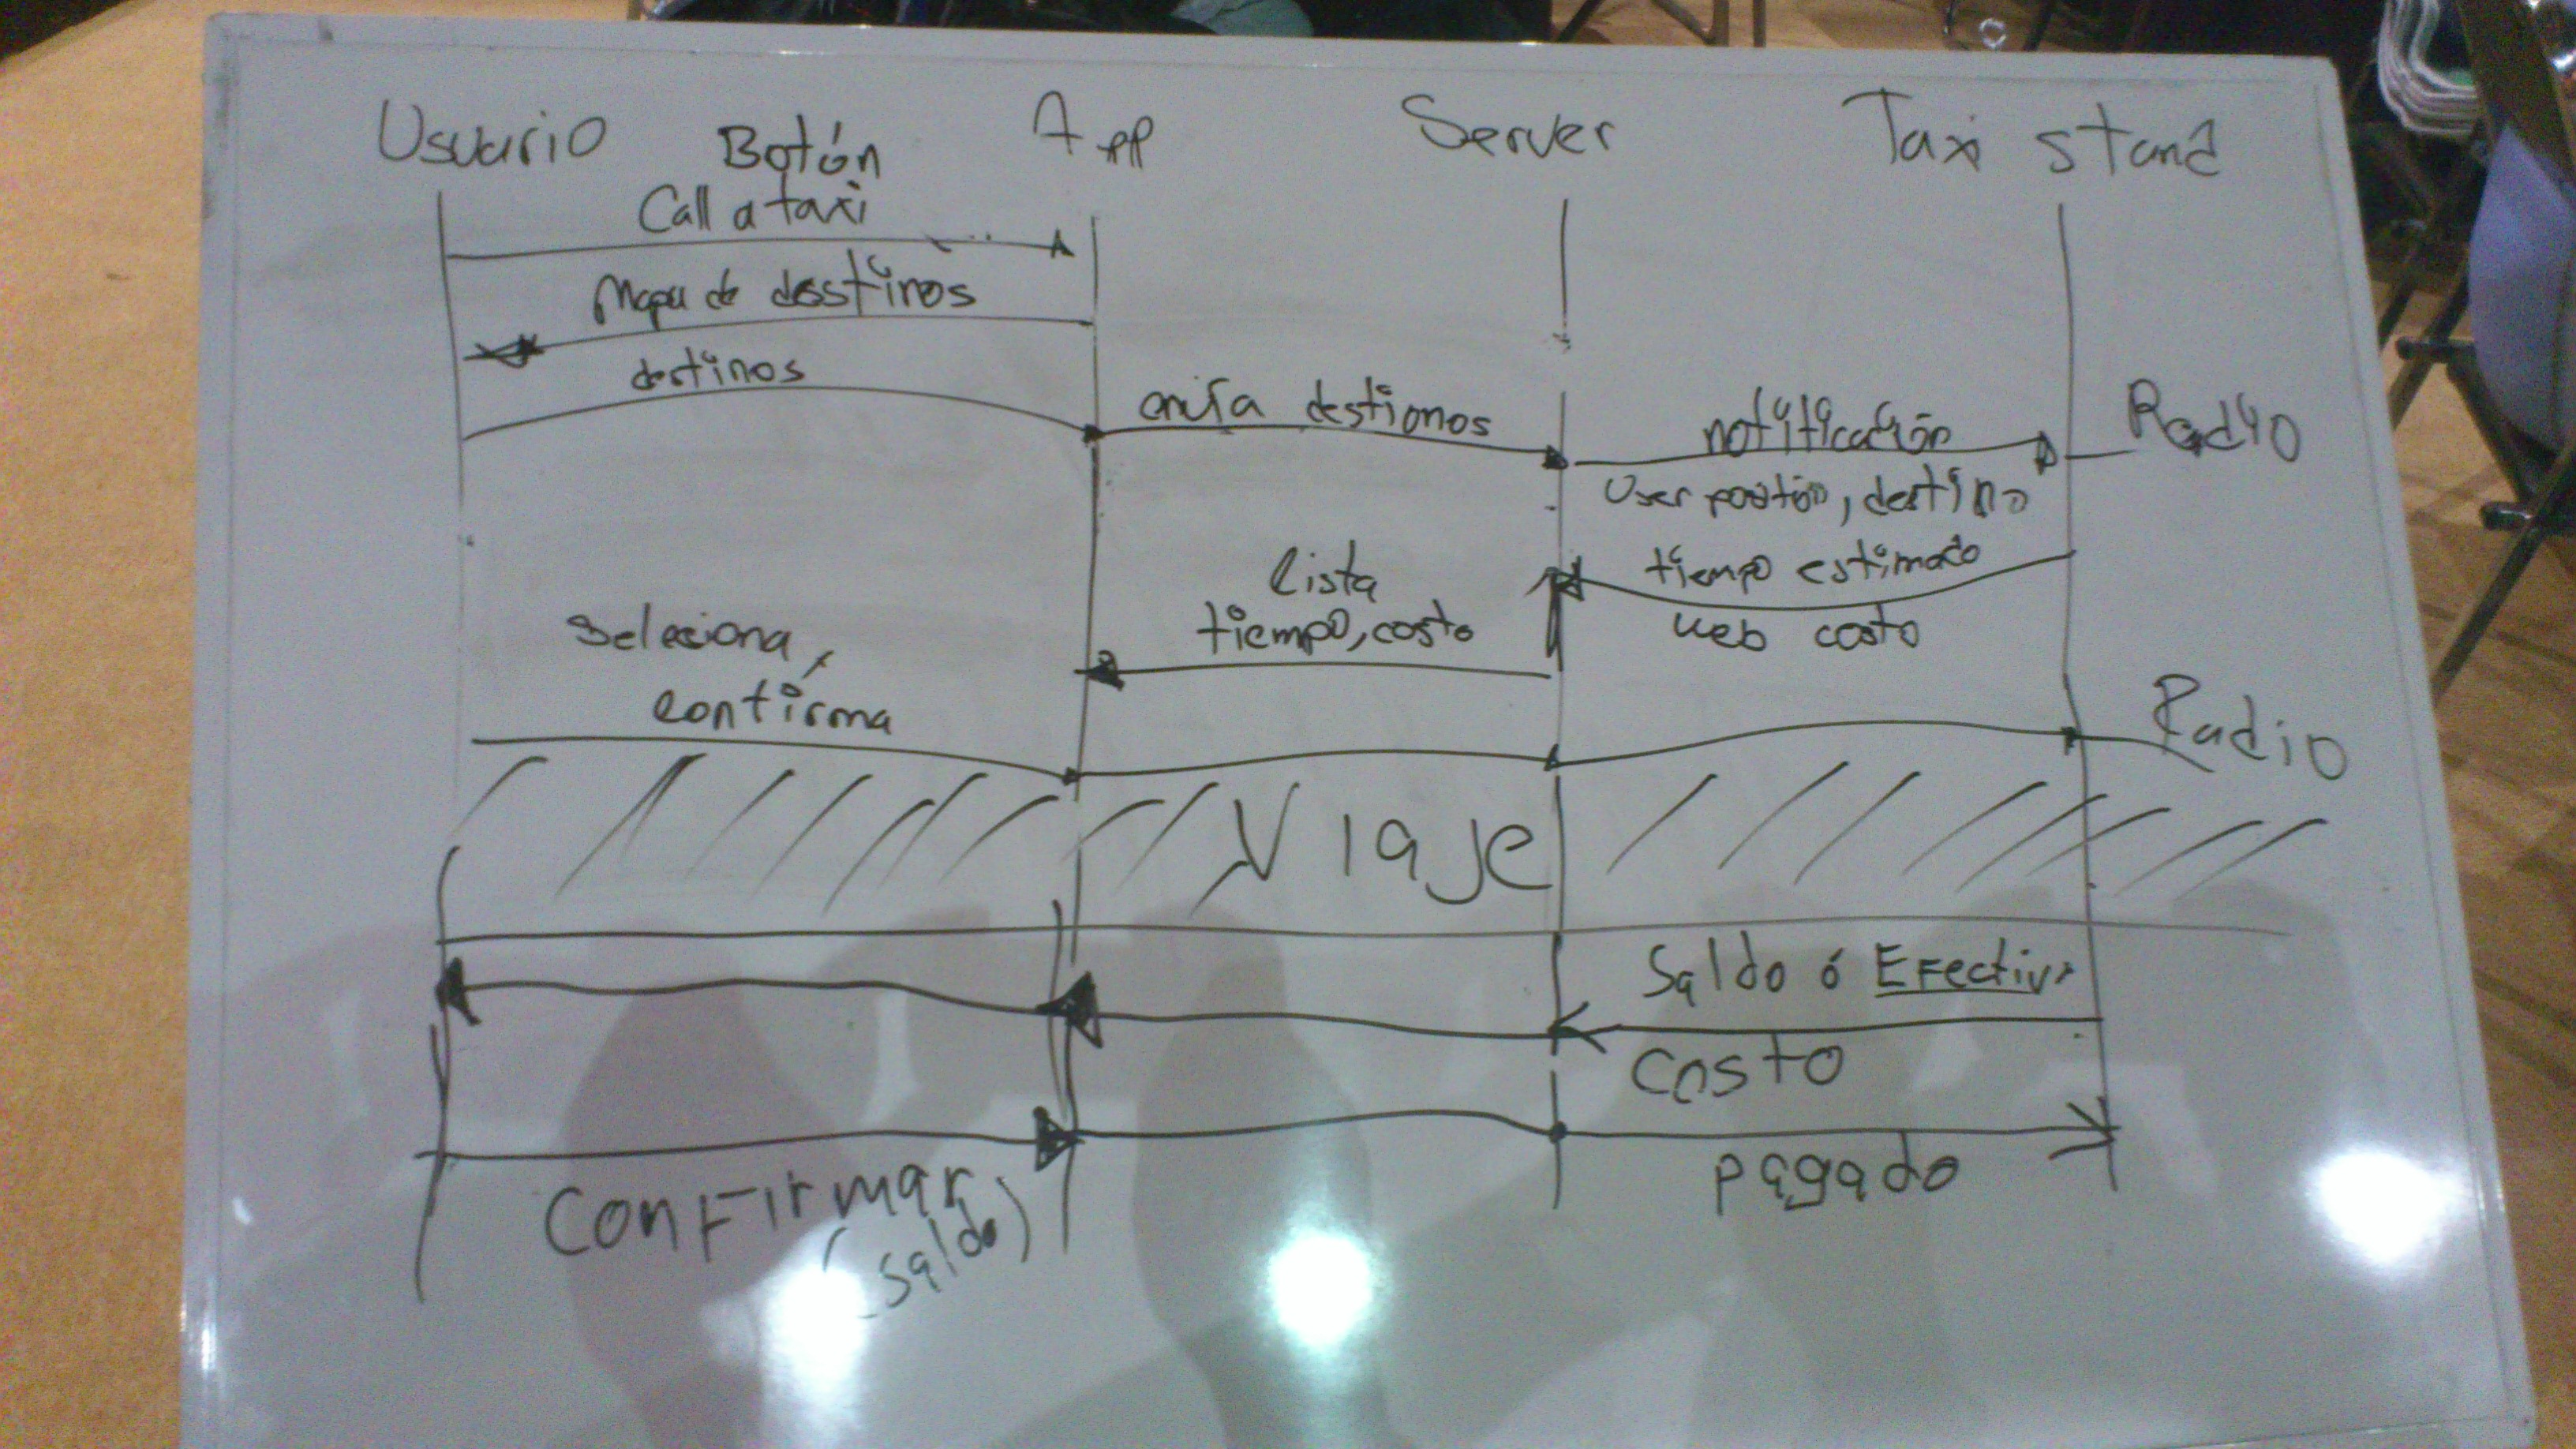 Usuario
Botón
App
Server
Taxi stand
Call a taxi
Mapa de destinos
destinos
envía destionos
notificación
Radio
User position, destino
tiempo estimado
web costo
lista
tiempo, costo
Seleciona,
confirma
Radio
Viaje
Saldo ó Efectivo
Costo
Confirmar
(saldo)
pagado